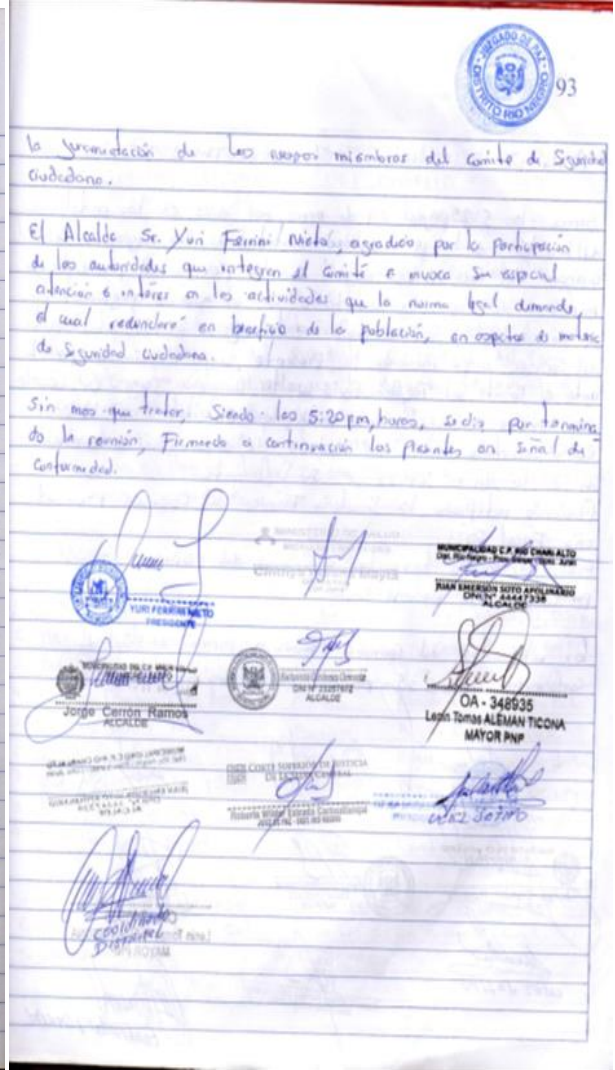 JUZGADO DE PAZ
DISTRITO RIO NEGRO
93
la juramentación de los miembros del Comite de Seguridad
ciudadana.
El Alcalde Sr. Yuri Ferrini Nieto, agradeció por la participación
de las autoridades que integran el Comité e invoca su especial
atención e interes en las actividades que la norma legal demanda,
el cual redundara en beneficio de la población, en aspectos de materia
de Seguridad ciudadana.
Sin mas que tratar, Siendo las 5:20 pm, horas, se dio por termina
do la reunión, Firmando a continuación los presentes en señal de
Conformidad.
YURI FERRINI NIETO
PRESIDENTE
MUNICIPALIDAD C.P. RIO CHARI ALTO
JUAN EMERSON SOTO APOLINARIO
DNI N° 44447338
ALCALDE
Jorge Cerrón Ramos
ALCALDE
ALCALDE
OA - 348935
Lenin Tomas ALEMAN TICONA
MAYOR PNP
CORTE SUPERIOR DE JUSTICIA
DE LA SELVA CENTRAL
COORDINADOR
DISTRITAL